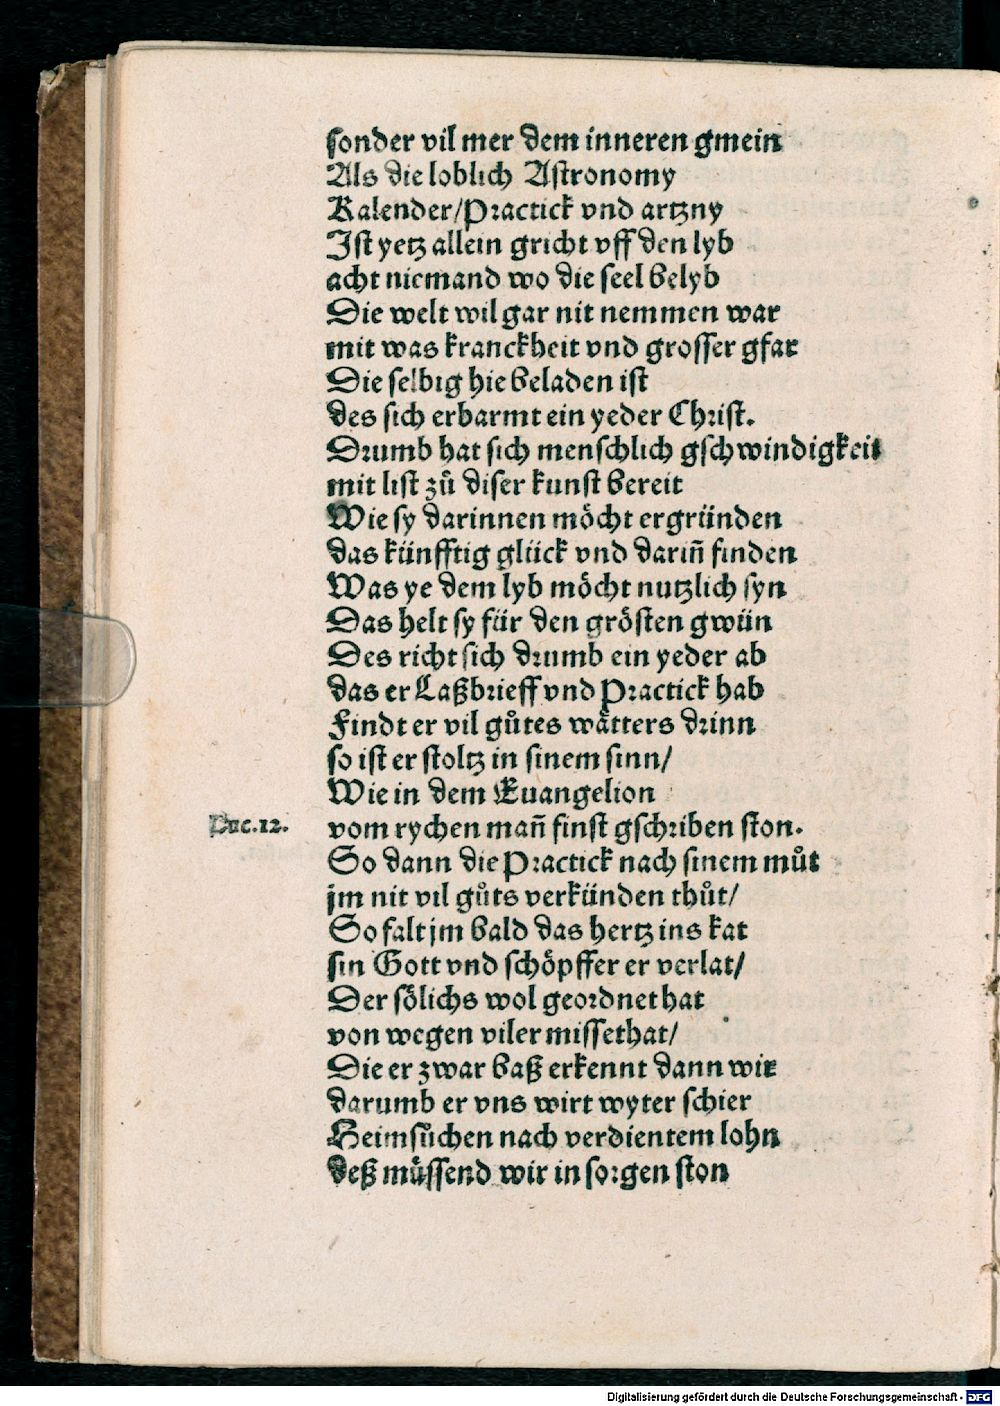 sonder vil mer dem inneren gmein
Als die loblich Astronomy
Kalender/Practick vnd artzny
Ist yetz allein gricht vff den lyb
acht niemand wo die seel belyb
Die welt wil gar nit nemmen war
mit was kranckheit vnd grosser gfar
Die selbig hie beladen ist
des sich erbarmt ein yeder Christ.
Drumb hat sich menschlich gschwindigkeit
mit list zů diser kunst bereit
Wie sy darinnen möcht ergründen
das künfftig glück vnd dariñ finden
Was ye dem lyb möcht nutzlich syn
Das helt sy für den grösten gwün
Des richt sich drumb ein yeder ab
das er Laßbrieff vnd Practick hab
Findt er vil gůtes wätters drinn
so ist er stoltz in sinem sinn/
Wie in dem Euangelion
Luc.12. vom rychen mañ finst gschriben ston.
So dann die Practick nach sinem můt
jm nit vil gůts verkünden thůt/
So falt jm bald das hertz ins kat
sin Gott vnd schöpffer er verlat/
Der sölichs wol geordnet hat
von wegen viler missethat/
Die er zwar baß erkennt dann wir
darumb er vns wirt wyter schier
Heimsůchen nach verdientem lohn
deß müssend wir in sorgen ston
Digitalisierung gefördert durch die Deutsche Forschungsgemeinschaft - DFG